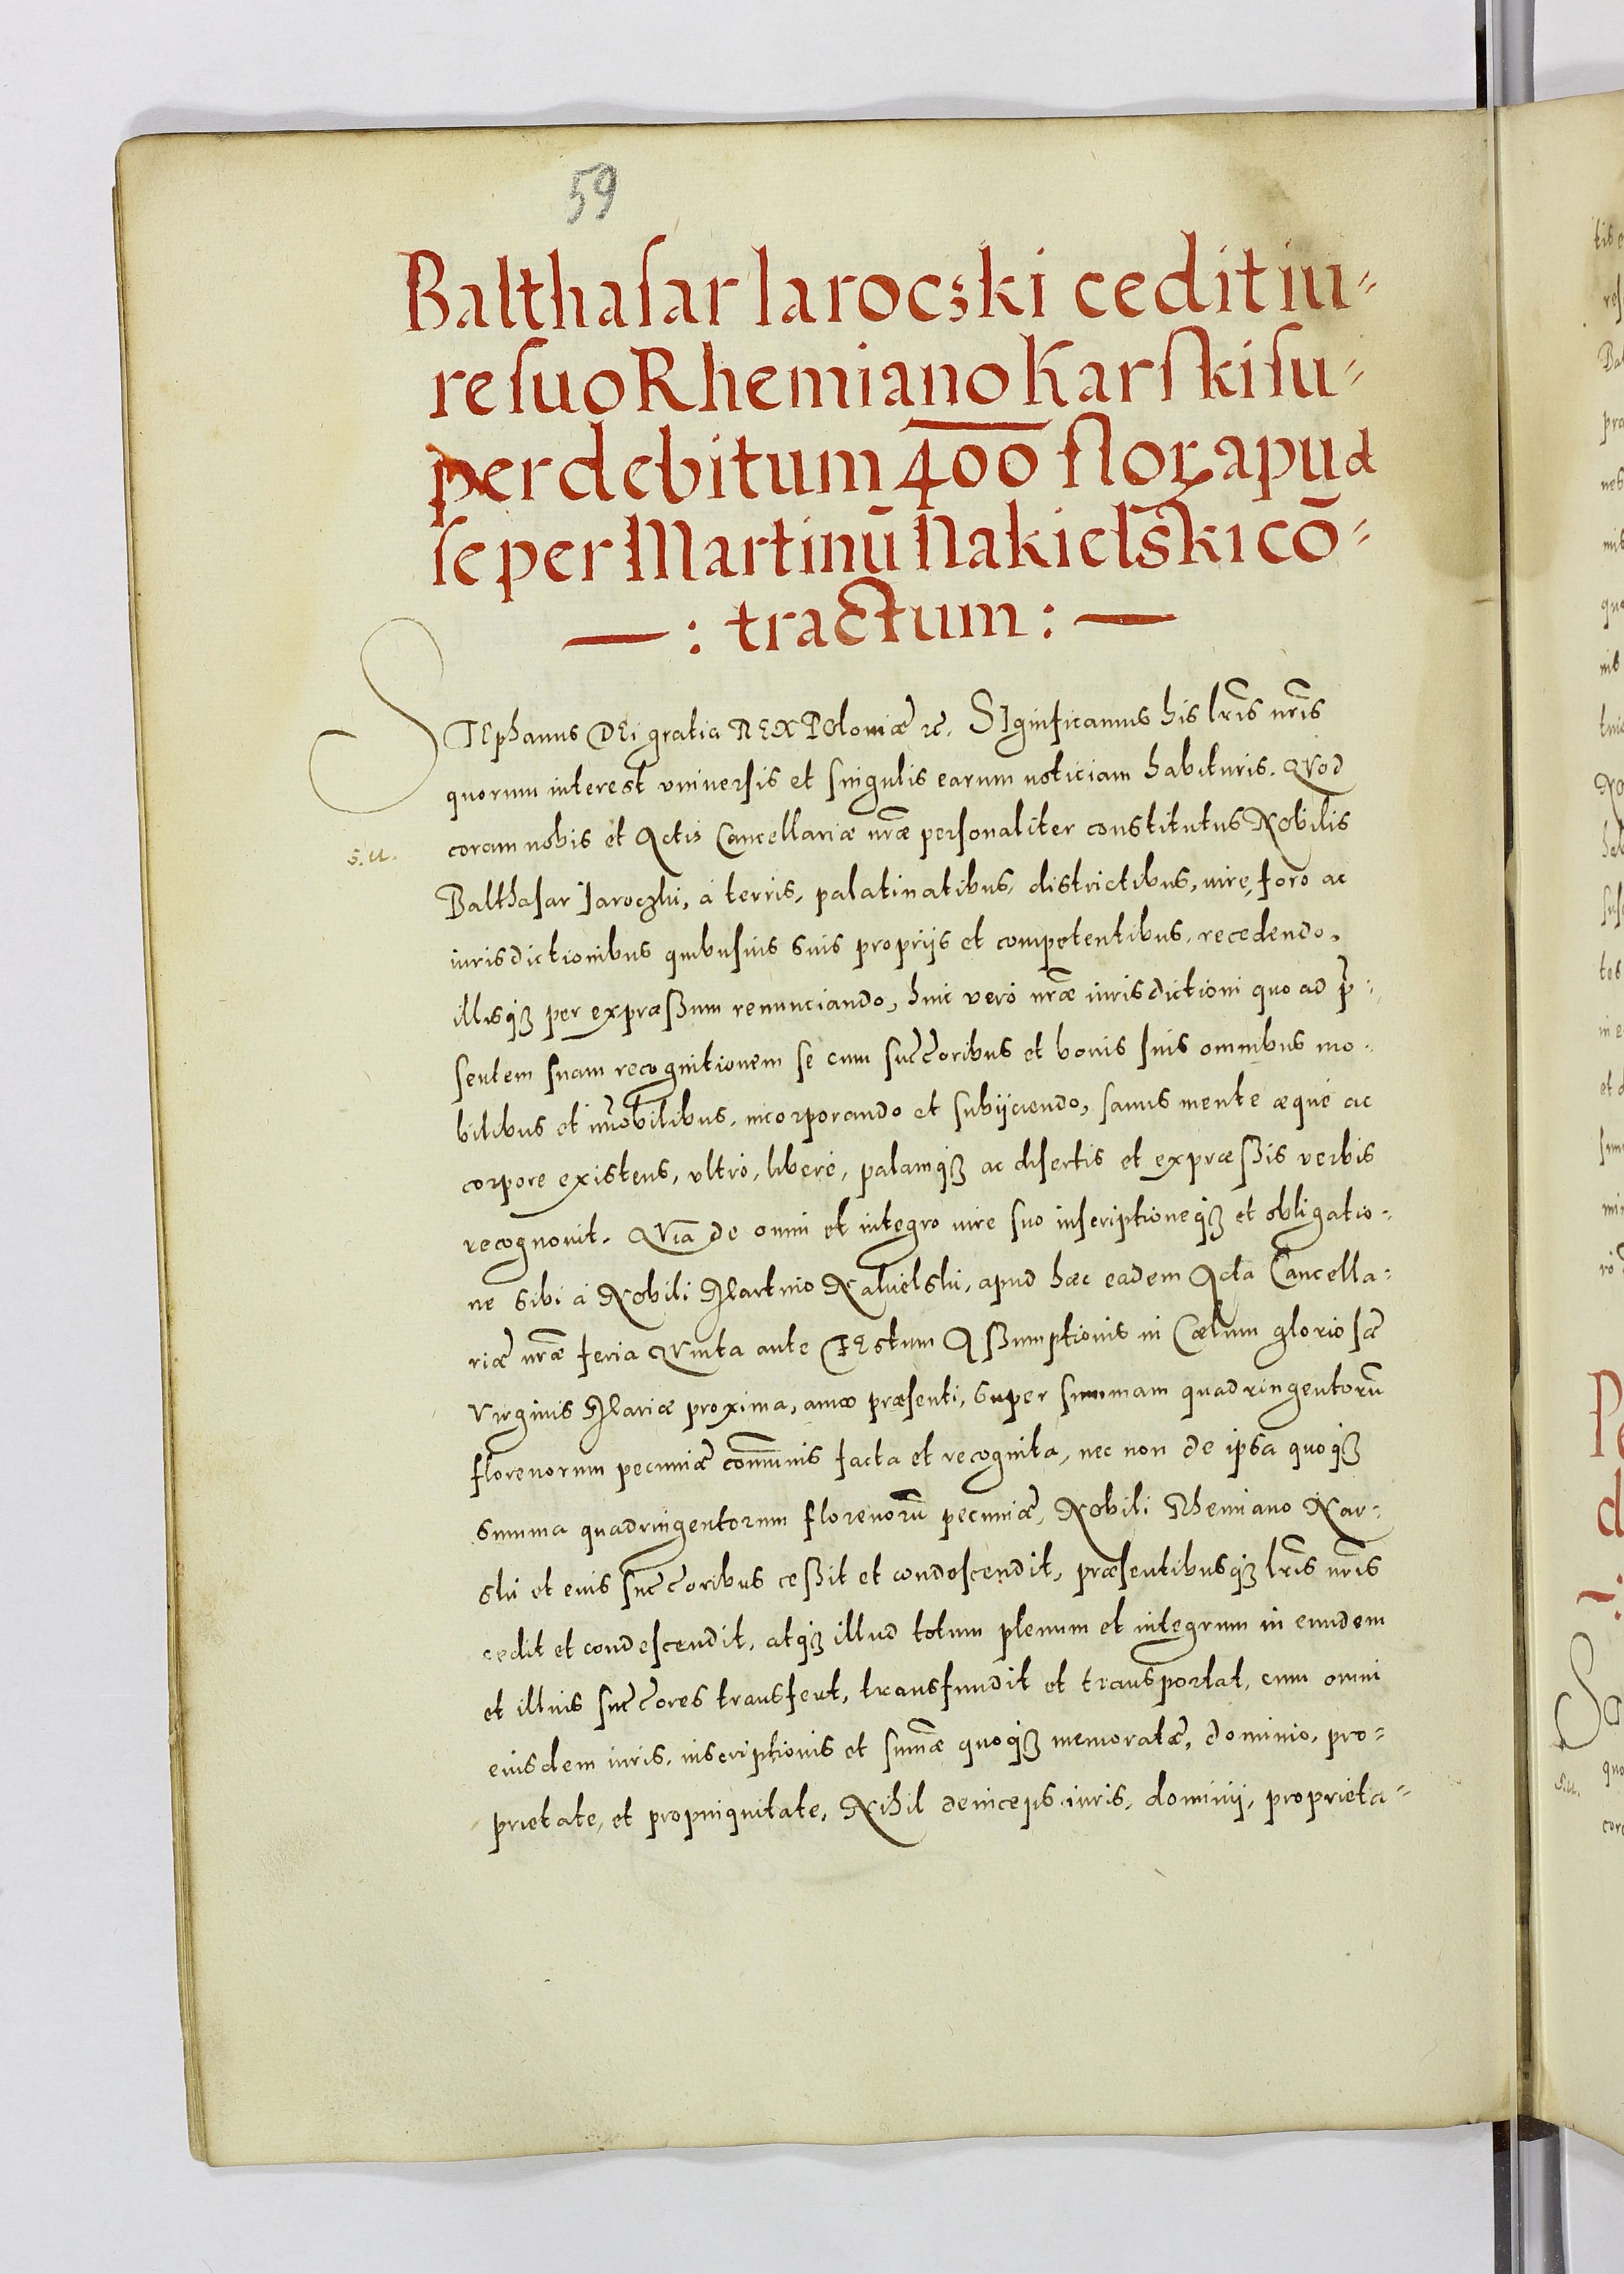 59
Balthasar Iaroczki cedit iu-
re suo Rhemiano Karski su-
per debitum 400 florꝝ apud
se per Martinū Nakielski cō-
—: tractum: —
STEphanus DEi gratia REX POloniæ ꝛc. SIgnificamus his lr̃is nr̃is
quorum interest vniuersis et singulis earum noticiam habituris. QVod
s. u.
coram nobis et Actis Cancellariæ nr̃æ personaliter constitutus Nobilis
Balthasar Iaroczki, à terris, palatinatibus, districtibus, iure, foro ac
iurisdictionibus quibusuis suis proprijs et competentibus, recedendo,
illisqꝫ per expræssum renunciando, huic verò nr̃æ iurisdictioni quo ad p̃-
sentem suam recognitionem se cum succ̃oribus et bonis suis omnibus mo-
bilibus et im̃obilibus, incorporando et subijciendo, sanus mente æquè ac
corpore existens, vltrò, liberè, palamqꝫ ac disertis et expræssis verbis
recognouit. QVia de omni et integro iure suo inscriptioneqꝫ et obligatio-
ne sibi à Nobili Martino Nakielski, apud hæc eadem Acta Cancella-
riæ nr̃æ feria QVinta ante FEstum Assumptionis in Cælum gloriosæ
Virginis Mariæ proxima, anno præsenti, super summam quadringentorū
florenorum pecuniæ com̃unis facta et recognita, nec non de ipsa quoqꝫ
summa quadringentorum florenorū pecuniæ, Nobili Rhemiano Kar-
ski et eius succ̃oribus cessit et condescendit, præsentibusqꝫ lr̃is nr̃is
cedit et condescendit, atqꝫ illud totum plenum et integrum in eundem
et illius succ̃ores transfert, transfundit et transportat, cum omni
eiusdem iuris, inscriptionis et sum̃æ quoqꝫ memoratæ, dominio, pro-
prietate, et propinquitate, Nihil deinceps iuris, dominij, proprieta-